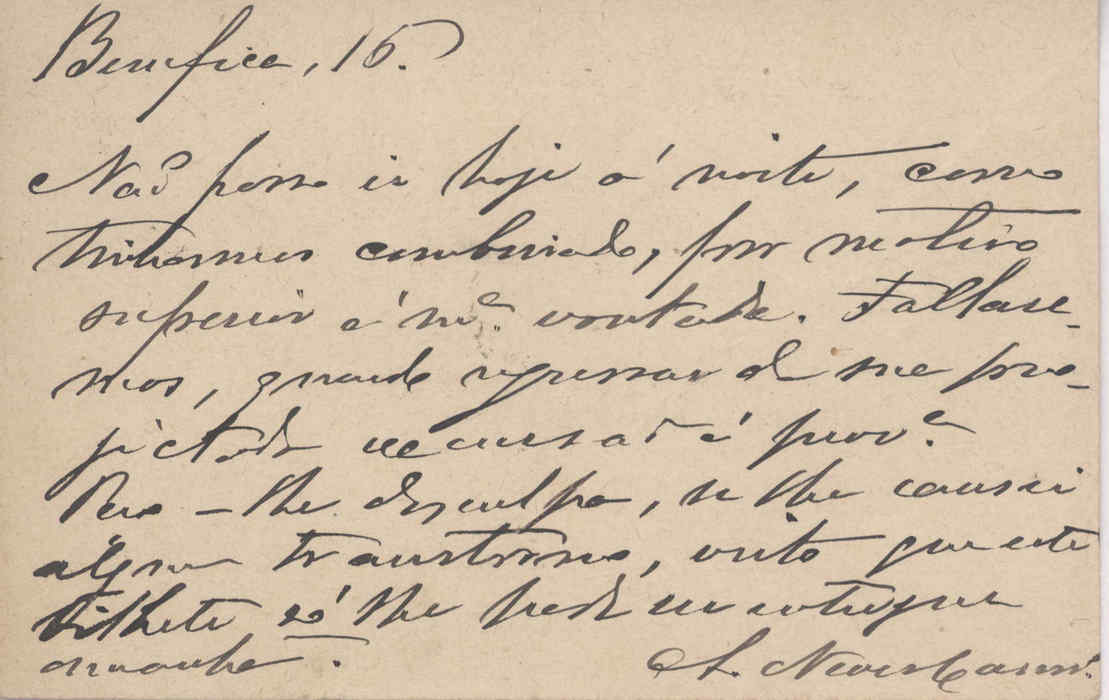 Bemfica, 16.
Não posso ir hoje á noite, como
tinhamos combinado, por motivo
superior á mª vontade. Fallare-
mos, quando regressar de me pro-
jectada excursão á provª
Peço-lhe desculpa, se lhe causei
algum transtorno, visto que este
bilhete só lhe pode ser entregue
amanhã.
A. Neves